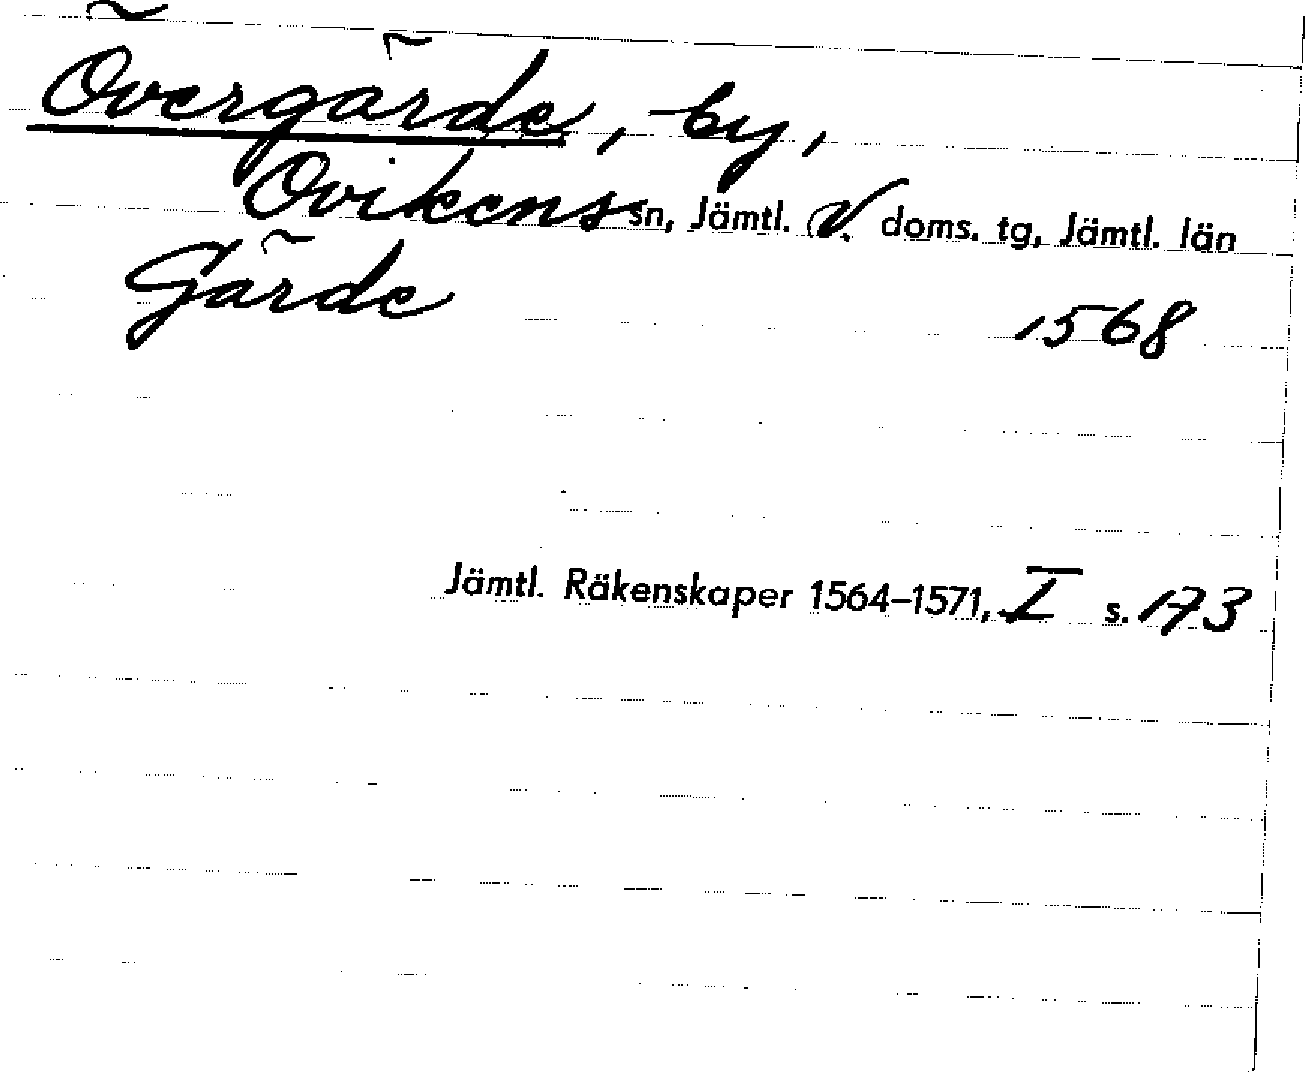 Övergärde, by,
Ovikens sn, Jämtl. V. doms. tg, Jämtl. län
Gärde 1568
Jämtl. Räkenskaper 1564–1571, I s. 173